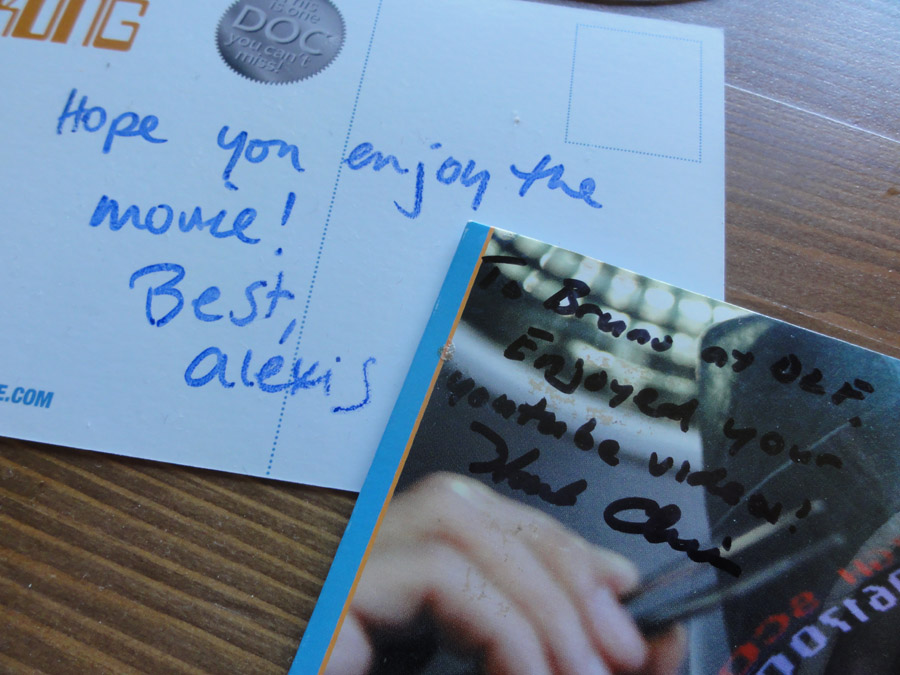 KONG
This
is one
DOC
you can't
miss!
Hope you enjoy the
movie!
Best,
Alexis
E.COM
To Bruno at OLF.
Enjoyed your
youtube videos!
Hank Chin